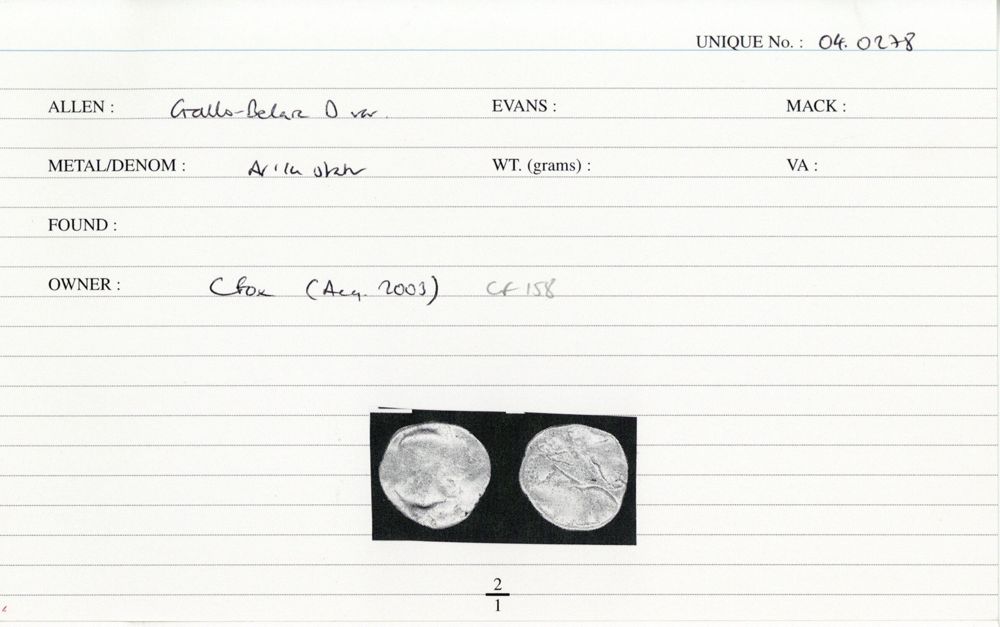 UNIQUE No. : 04. 0278
ALLEN : Gallo-Belgic D var. EVANS : MACK :
METAL/DENOM : WT. (grams) : VA :
FOUND :
OWNER : C Fox (Acq. 2003) CF 158
2
1